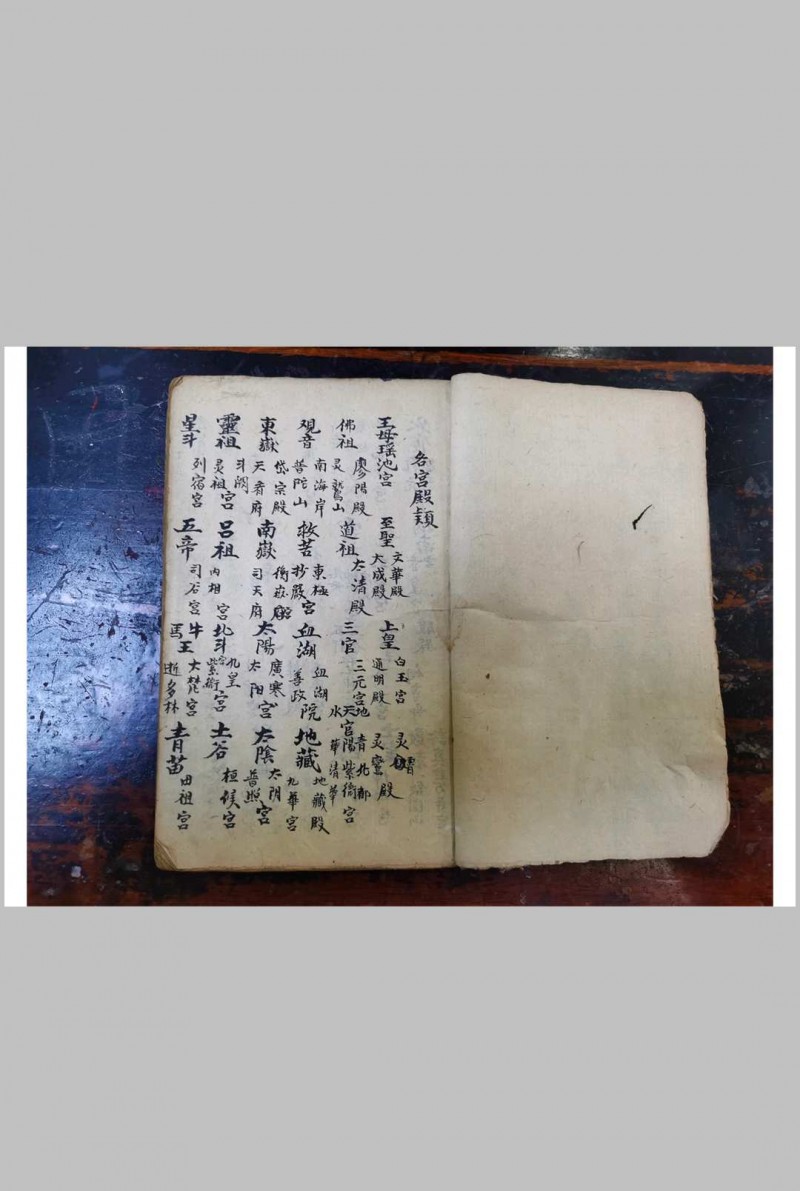 各宮殿類
王母瑶池宮 至聖 文華殿 大成殿 上皇 白玉宮 通明殿 灵霄 灵寳殿
佛祖 廖阳殿 灵鷲山 道祖 太清殿 三官 三元宮 天官 地 水 陽 青北都 紫衛宮 華清華
观音 南海岸 普陀山 救苦 東極 抄嚴宮 血湖 血湖 善政院 地藏 地藏殿 九華宮
東嶽 岱宗殿 天斉府 南嶽 衡嶽殿 司天府 太陽 廣寒 太阳宮 太陰 太阴 普照宮
靈祖 斗阙 灵祖宮 吕祖 内相宮 北斗 九皇 紫衛宮 土谷 桓侯宮
星斗 列宿宮 五帝 司谷宮 牛馬王 大梵宮 逝多林 青苗 田祖宮